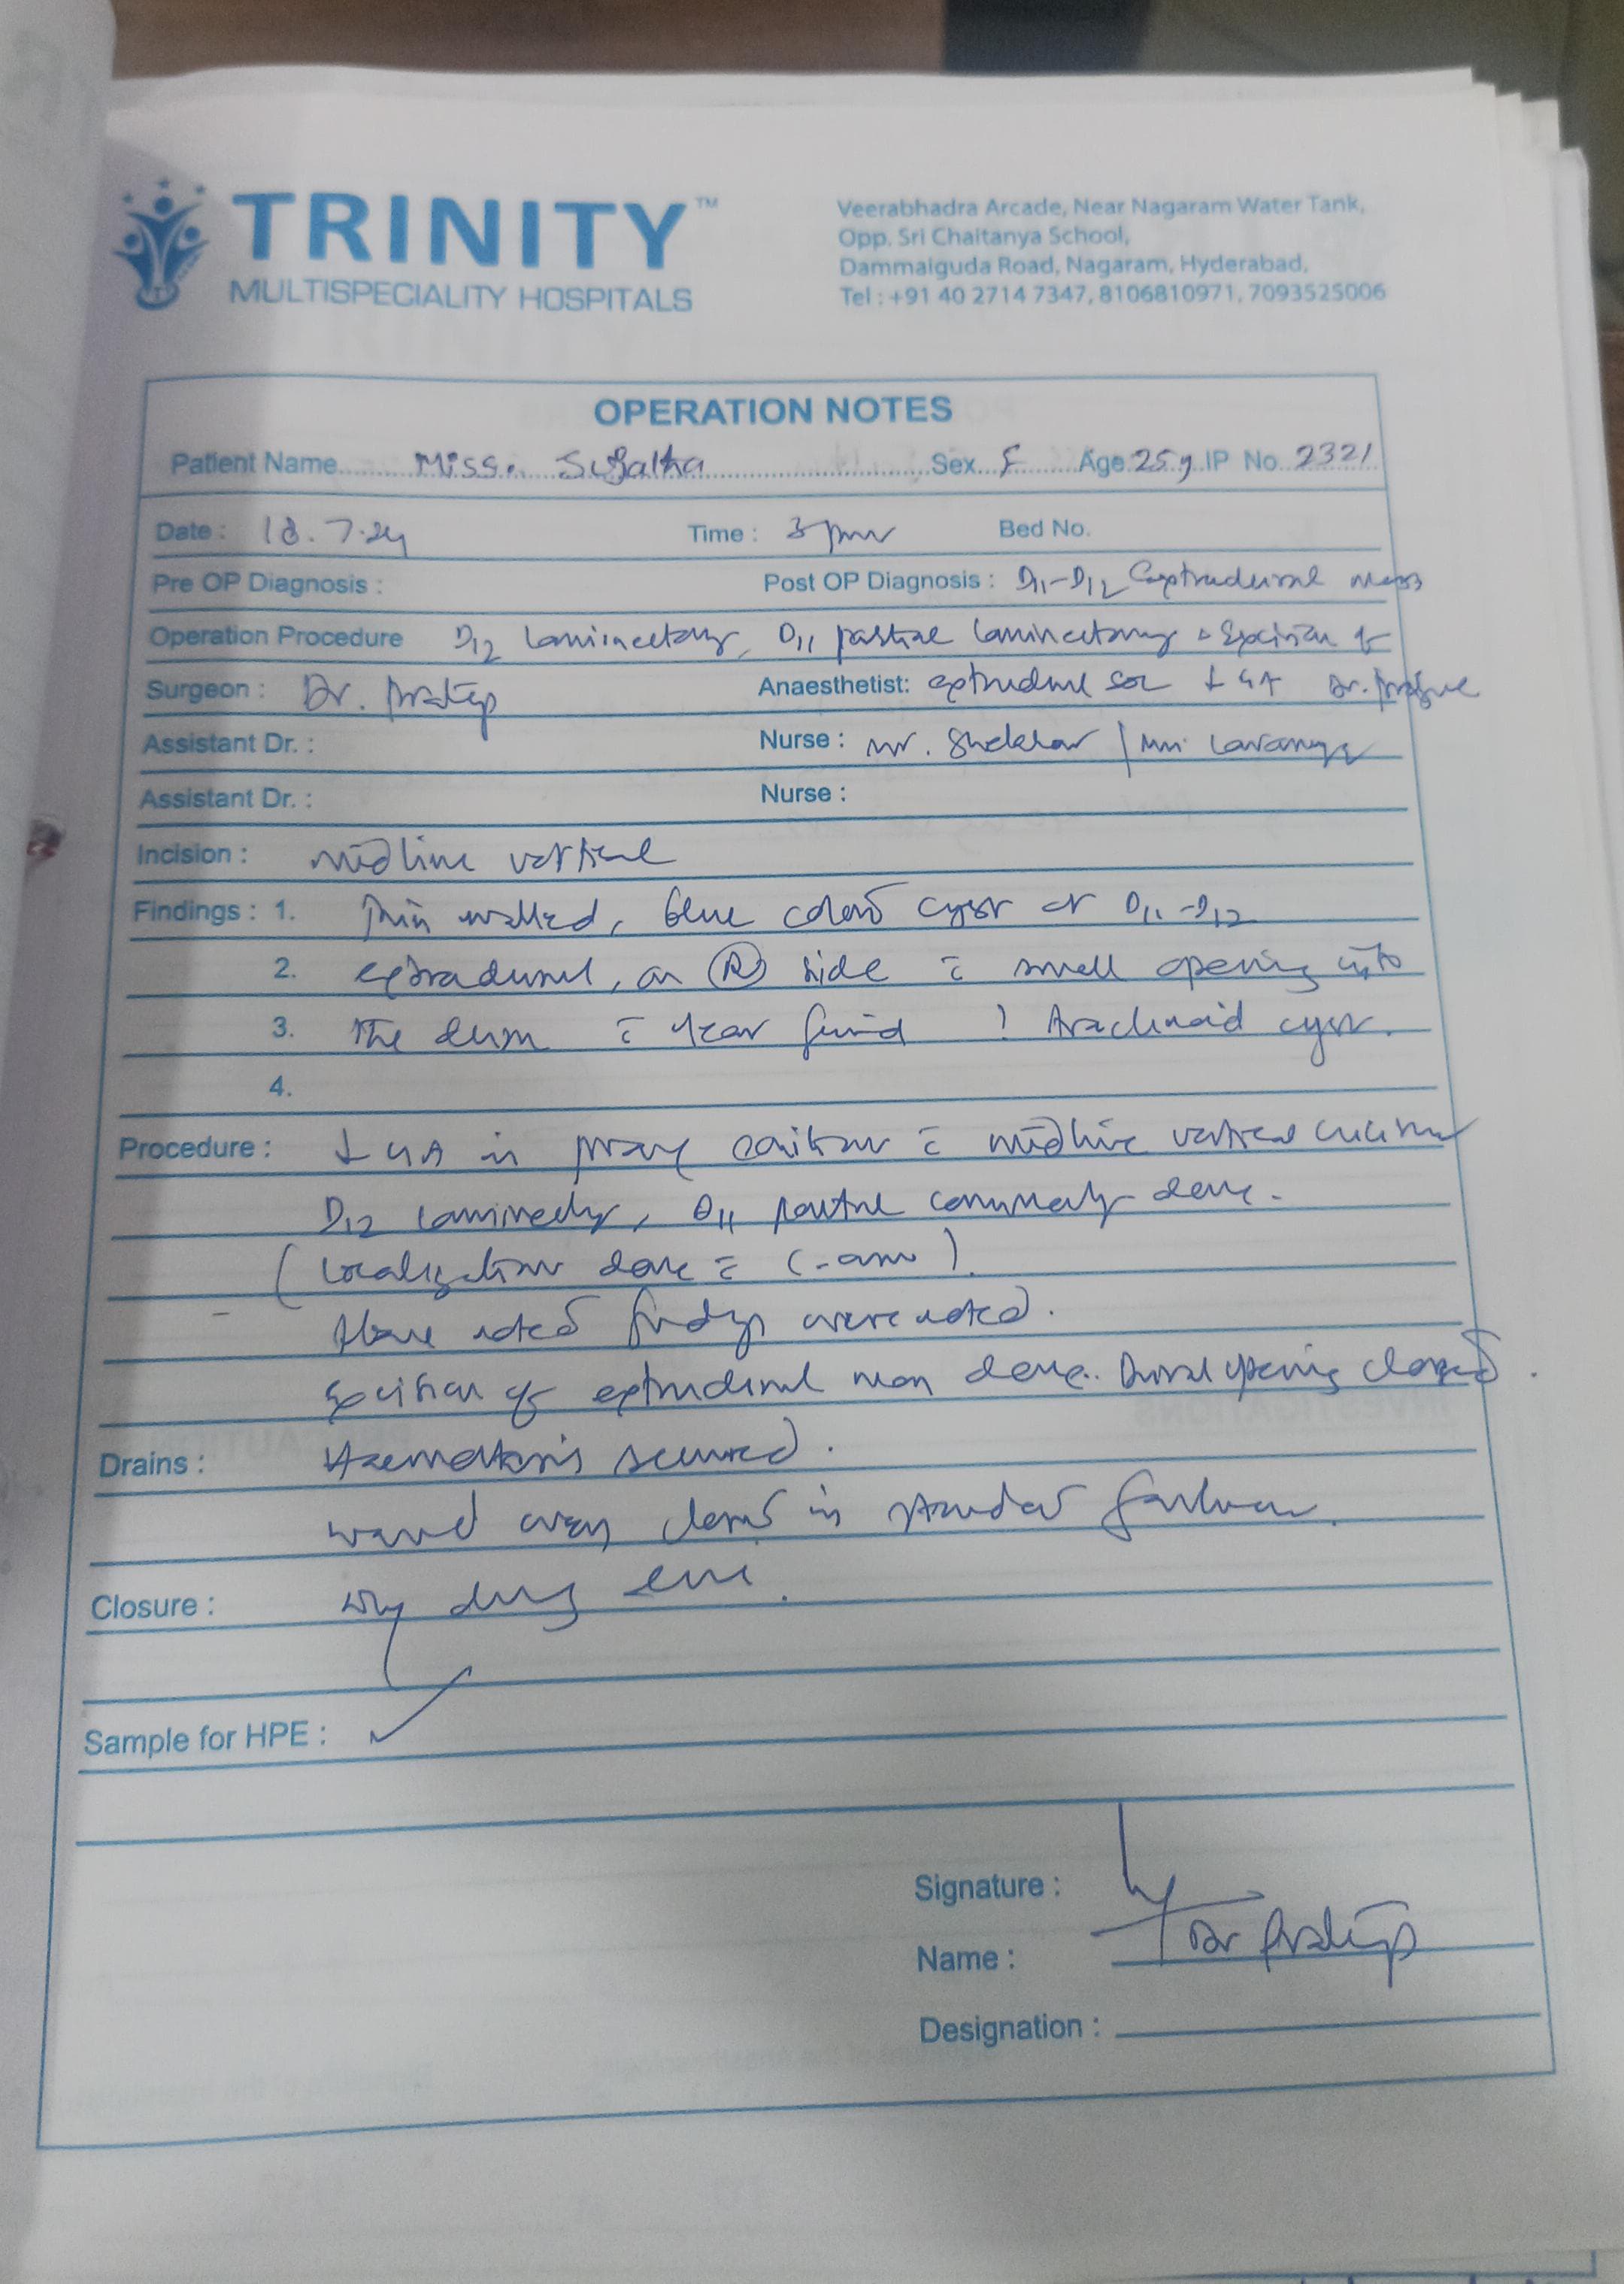 TRINITY™
MULTISPECIALITY HOSPITALS
Veerabhadra Arcade, Near Nagaram Water Tank,
Opp. Sri Chaitanya School,
Dammaiguda Road, Nagaram, Hyderabad,
Tel : +91 40 2714 7347, 8106810971, 7093525006
OPERATION NOTES
Patient Name Miss. Sujatha Sex F Age 25y IP No. 2321
Date : 18.7.24 Time : 3 pm Bed No.
Pre OP Diagnosis : Post OP Diagnosis : D11-D12 extradural mass
Operation Procedure D12 laminectomy, D11 partial laminectomy & Excision of
Surgeon : Dr. Pratap Anaesthetist: extradural SOL ↓ GA Dr.
Assistant Dr. : Nurse : Mr. Shekhar / Lavanya
Assistant Dr. : Nurse :
Incision : midline vertical
Findings : 1. Thin walled, blue colour cyst at D11-D12
2. extradural, on Ⓡ side c̄ small opening into
3. the dura c̄ clear fluid ? Arachnoid cyst.
4.
Procedure : ↓ GA in prone position c̄ midline vertical incision
D12 laminectomy, D11 partial laminectomy done.
(localization done c̄ C-arm).
Above noted findings were noted.
Excision of extradural mass done. Dural opening closed.
Drains : Haemostasis secured.
wound closed in standard fashion.
Closure :
Sample for HPE : ✓
Signature :
Name : Dr Pratap
Designation :